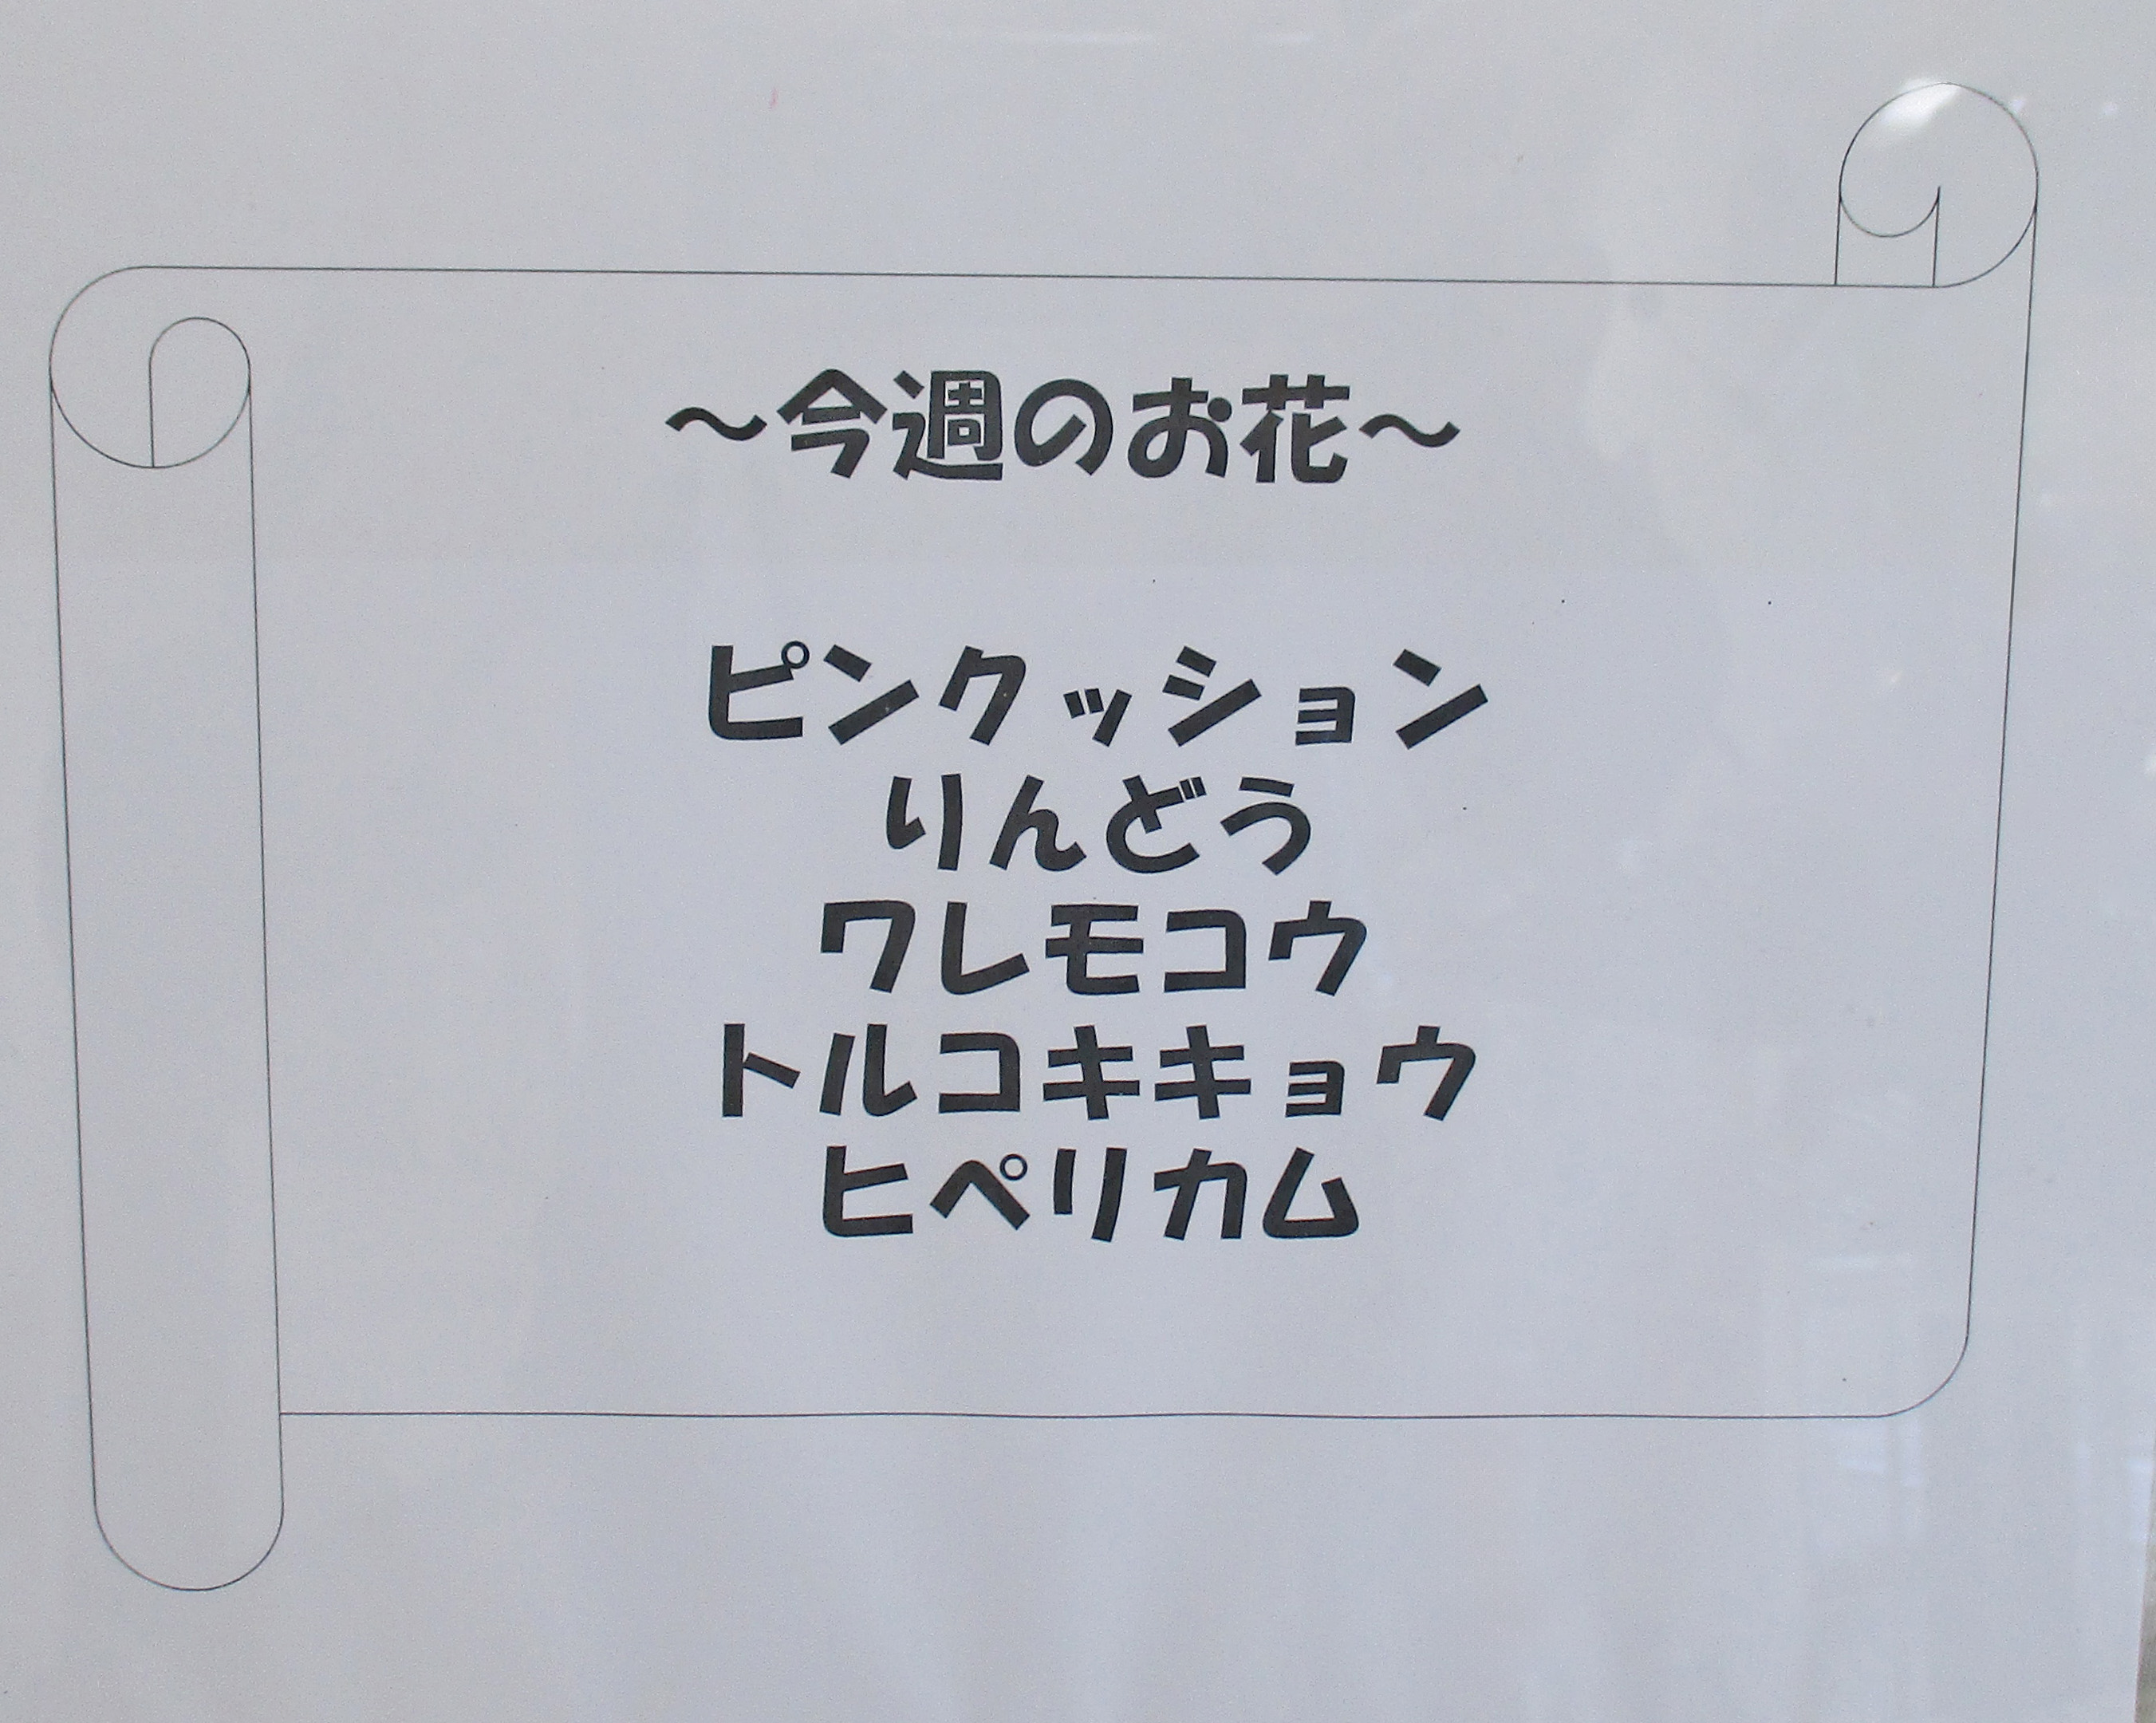 ～今週のお花～
ピンクッション
りんどう
ワレモコウ
トルコキキョウ
ヒペリカム